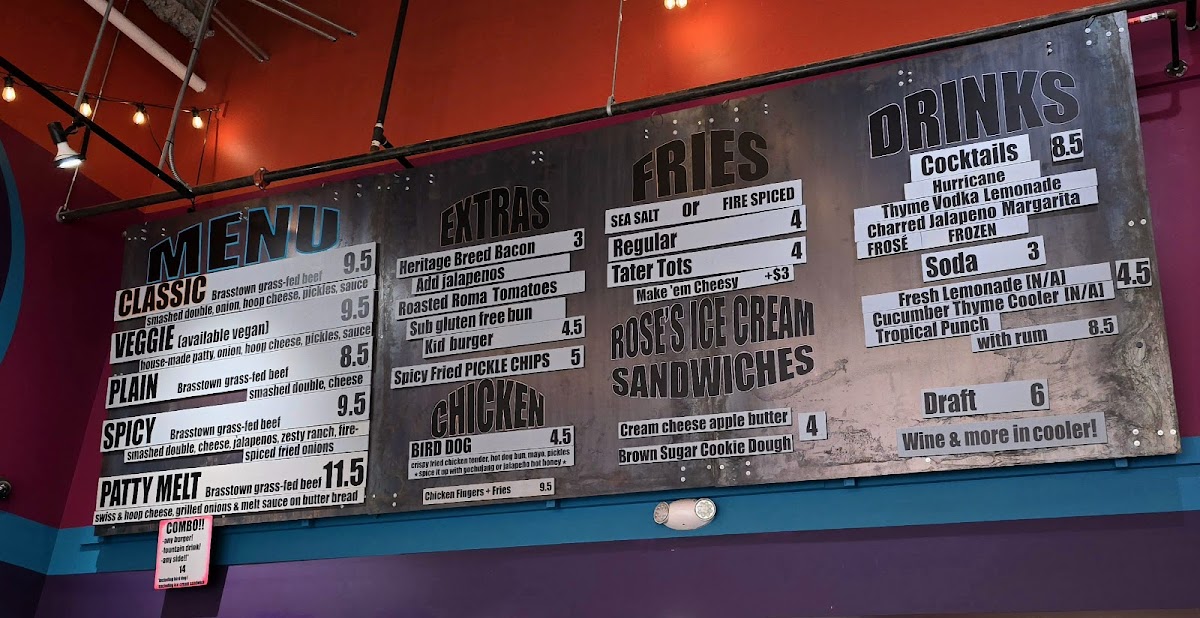 MENU
CLASSIC Brasstown grass-fed beef 9.5
smashed double, onion, hoop cheese, pickles, sauce
VEGGIE (available vegan) 9.5
house-made patty, onion, hoop cheese, pickles, sauce
PLAIN Brasstown grass-fed beef 8.5
smashed double, cheese
SPICY Brasstown grass-fed beef 9.5
smashed double, cheese, jalapenos, zesty ranch, fire-
spiced fried onions
PATTY MELT Brasstown grass-fed beef 11.5
swiss & hoop cheese, grilled onions & melt sauce on butter bread
COMBO!!
-any burger!
-fountain drink!
-any side!!*
14
EXTRAS
Heritage Breed Bacon 3
Add jalapenos
Roasted Roma Tomatoes
Sub gluten free bun
Kid burger 4.5
Spicy Fried PICKLE CHIPS 5
CHICKEN
BIRD DOG 4.5
crispy fried chicken tender, hot dog bun, mayo, pickles
+ spice it up with gochujang or jalapeño hot honey +
Chicken Fingers + Fries 9.5
FRIES
SEA SALT or FIRE SPICED
Regular 4
Tater Tots 4
Make 'em Cheesy +$3
ROSE'S ICE CREAM
SANDWICHES
Cream cheese apple butter 4
Brown Sugar Cookie Dough
DRINKS
Cocktails 8.5
Hurricane
Thyme Vodka Lemonade
Charred Jalapeno Margarita
FROSÉ FROZEN
Soda 3
Fresh Lemonade [N/A] 4.5
Cucumber Thyme Cooler [N/A]
Tropical Punch
with rum 8.5
Draft 6
Wine & more in cooler!